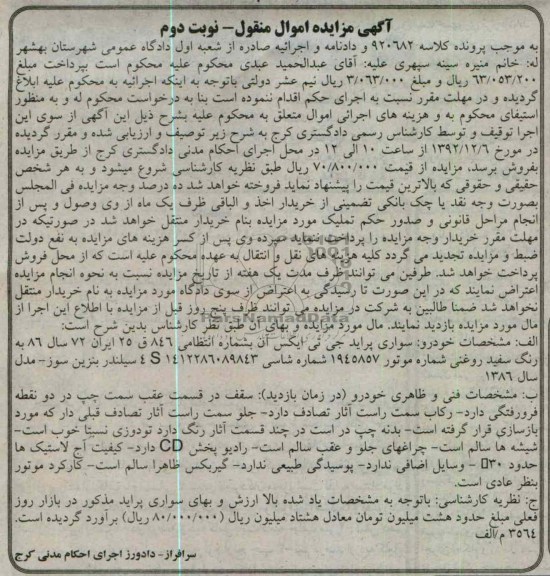 آگهی مزایده اموال منقول- نوبت دوم
به موجب پرونده کلاسه ۹۲۰۶۸۲ و دادنامه و اجرائیه صادره از شعبه اول دادگاه عمومی شهرستان بهشهر
له: خانم منیره سینه سپهری علیه: آقای عبدالحمید عبدی محکوم علیه محکوم است بپرداخت مبلغ
۶۳/۰۵۳/۲۰۰ ریال و مبلغ ۳/۰۶۳/۰۰۰ ریال نیم عشر دولتی باتوجه به اینکه اجرائیه به محکوم علیه ابلاغ
گردیده و در مهلت مقرر نسبت به اجرای حکم اقدام ننموده است بنا به درخواست محکوم له و به منظور
استیفای محکوم به و هزینه های اجرائی اموال متعلق به محکوم علیه بشرح ذیل این آگهی از سوی این
اجرا توقیف و توسط کارشناس رسمی دادگستری کرج به شرح زیر توصیف و ارزیابی شده و مقرر گردیده
در مورخ ۱۳۹۲/۱۲/۶ از ساعت ۱۰ الی ۱۲ در محل اجرای احکام مدنی دادگستری کرج از طریق مزایده
بفروش برسد، مزایده از قیمت ۷۰/۸۰۰/۰۰۰ ریال طبق نظریه کارشناسی شروع میشود و به هر شخص
حقیقی و حقوقی که بالاترین قیمت را پیشنهاد نماید فروخته خواهد شد ده درصد وجه مزایده فی المجلس
بصورت وجه نقد یا چک بانکی تضمینی از خریدار اخذ و الباقی ظرف یک ماه از وی وصول و پس از
انجام مراحل قانونی و صدور حکم تملیک مورد مزایده بنام خریدار منتقل خواهد شد در صورتیکه در
مهلت مقرر خریدار وجه مزایده را پرداخت ننماید سپرده وی پس از کسر هزینه های مزایده به نفع دولت
ضبط و مزایده تجدید می گردد کلیه هزینه های نقل و انتقال به عهده محکوم علیه است که از محل فروش
پرداخت خواهد شد. طرفین می توانند ظرف مدت یک هفته از تاریخ مزایده نسبت به نحوه انجام مزایده
اعتراض نمایند که در این صورت تا رسیدگی به اعتراض از سوی دادگاه مورد مزایده به نام خریدار منتقل
نخواهد شد ضمنا طالبین به شرکت در مزایده می توانند ظرف پنج روز قبل از مزایده با اطلاع این اجرا از
مال مورد مزایده بازدید نمایند. مال مورد مزایده و بهای آن طبق نظر کارشناس بدین شرح است:
الف: مشخصات خودرو: سواری پراید جی تی ایکس آن بشماره انتظامی ۸۴۶ ق ۲۵ ایران ۷۲ سال ۸۶ به
رنگ سفید روغنی شماره موتور ۱۹۴۵۸۵۷ شماره شاسی S ۱۴۱۲۲۸۶۰۸۹۸۴۳ ۴ سیلندر بنزین سوز- مدل
سال ۱۳۸۶
ب: مشخصات فنی و ظاهری خودرو (در زمان بازدید): سقف در قسمت عقب سمت چپ در دو نقطه
فرورفتگی دارد- رکاب سمت راست آثار تصادف دارد- جلو سمت راست آثار تصادف قبلی دار که مورد
بازسازی قرار گرفته است- بدنه چپ در است در چند قسمت آثار رنگ دارد تودوزی نسبتا خوب است-
شیشه ها سالم است- چراغهای جلو و عقب سالم است- رادیو پخش CD دارد- کیفیت آج لاستیک ها
حدود ۳۰٪ - وسایل اضافی ندارد- پوسیدگی طبیعی ندارد- گیربکس ظاهرا سالم است- کارکرد موتور
بنظر عادی است.
ج: نظریه کارشناسی: باتوجه به مشخصات یاد شده بالا ارزش و بهای سواری پراید مذکور در بازار روز
فعلی مبلغ حدود هشت میلیون تومان معادل هشتاد میلیون ریال (۸۰/۰۰۰/۰۰۰ ریال) برآورد گردیده است.
۳۵۶۴ م/الف
سرافراز- دادورز اجرای احکام مدنی کرج